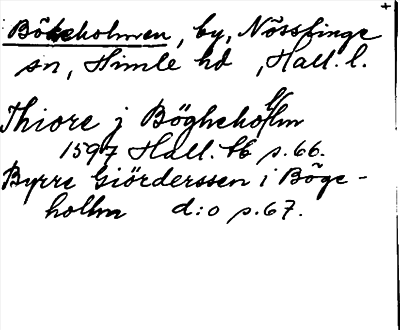 Bökeholmen, by, Nösslinge
sn, Himle hd, Hall. l.
Thiore j Böghehollm
1597 Hall. lb p. 66.
Byrre Giörderssen i Böge-
hollm d:o p. 67.